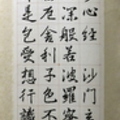 心經沙門
深般若波羅
厄舍利子色不
是色受想行識